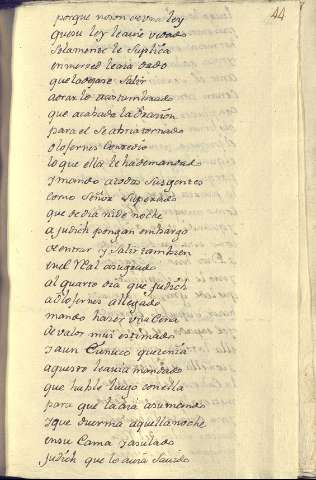 44
porque no son de una ley
que su ley le avie vedado
solamente le suplica
en merced le aia dado
que la dexase salir
a orar lo acostumbrado
que acabada la oracion
para el se abria tornado
olofernes concedio
lo que ella le ha demandado
y mando a todas sus gentes
como Señor superado
que de dia ni de noche
a judich pongan embargo
de entrar y salir tambien
en el Real asigurado
al quarto dia que judich
a olofernes allegado
mando hazer una Cena
de valor mui estimado
y a un Eunuco que tenia
aquesto le avia mandado
que hable luego con ella
para que la aia a su mando
y que duerma aquella noche
en su Cama y a su lado
judich que lo auia sauido